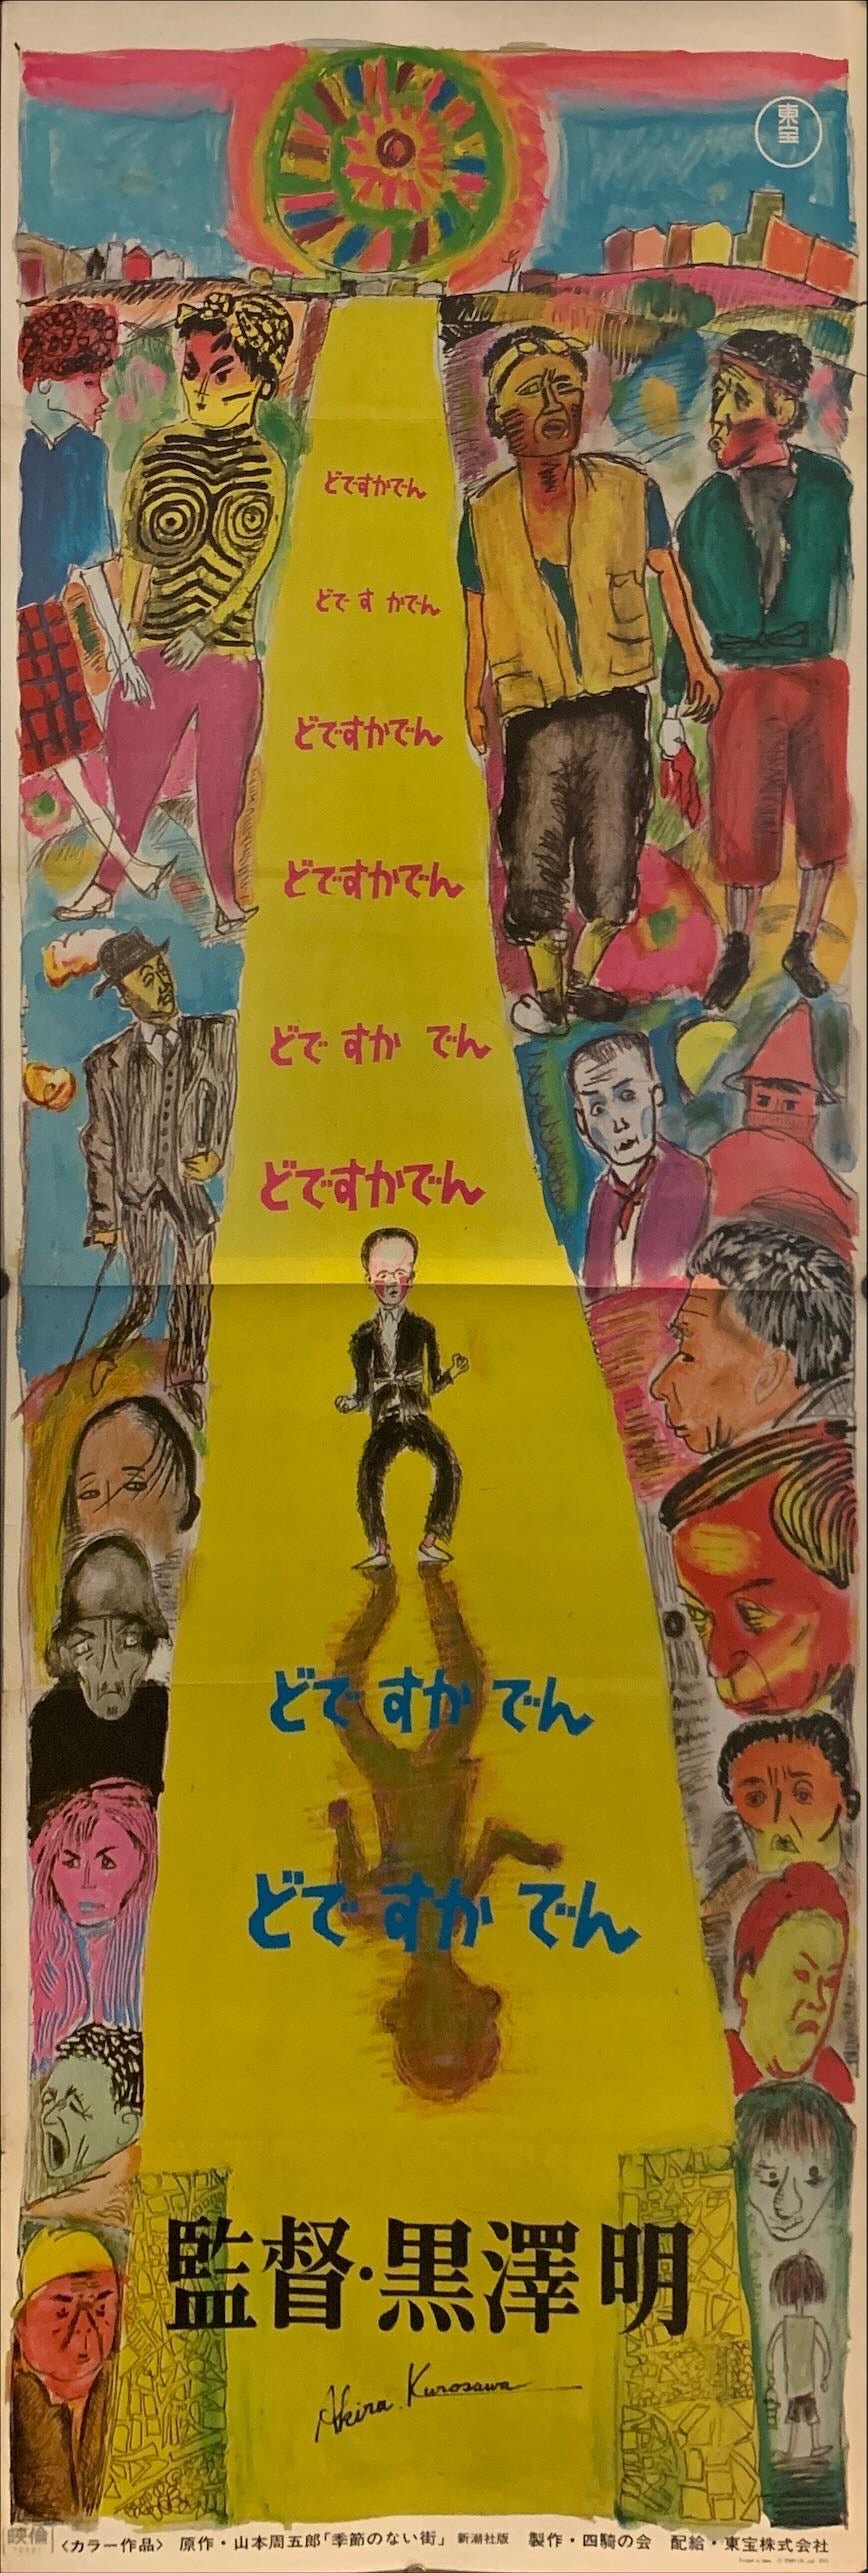 東宝
どですかでん
どで す かでん
どですかでん
どですかでん
どで すか でん
どですかでん
どで すか でん
どで すか でん
監督・黒澤 明
Akira Kurosawa
映倫
〈カラー作品〉 原作・山本周五郎「季節のない街」 新潮社版 製作・四騎の会 配給・東宝株式会社